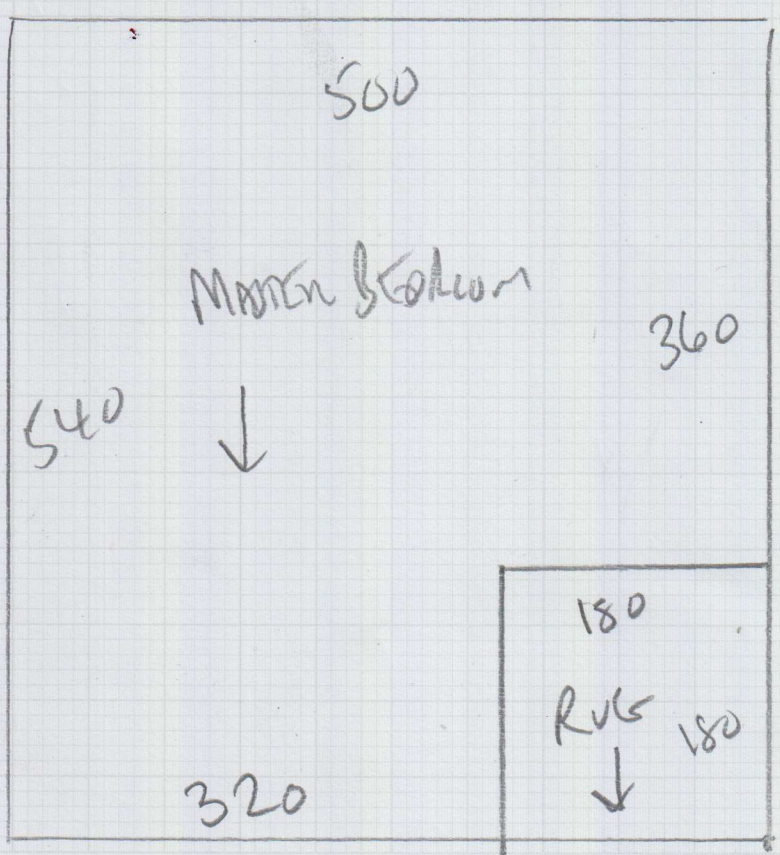 500
MASTER BEDROOM
360
540
180
RUG
180
320